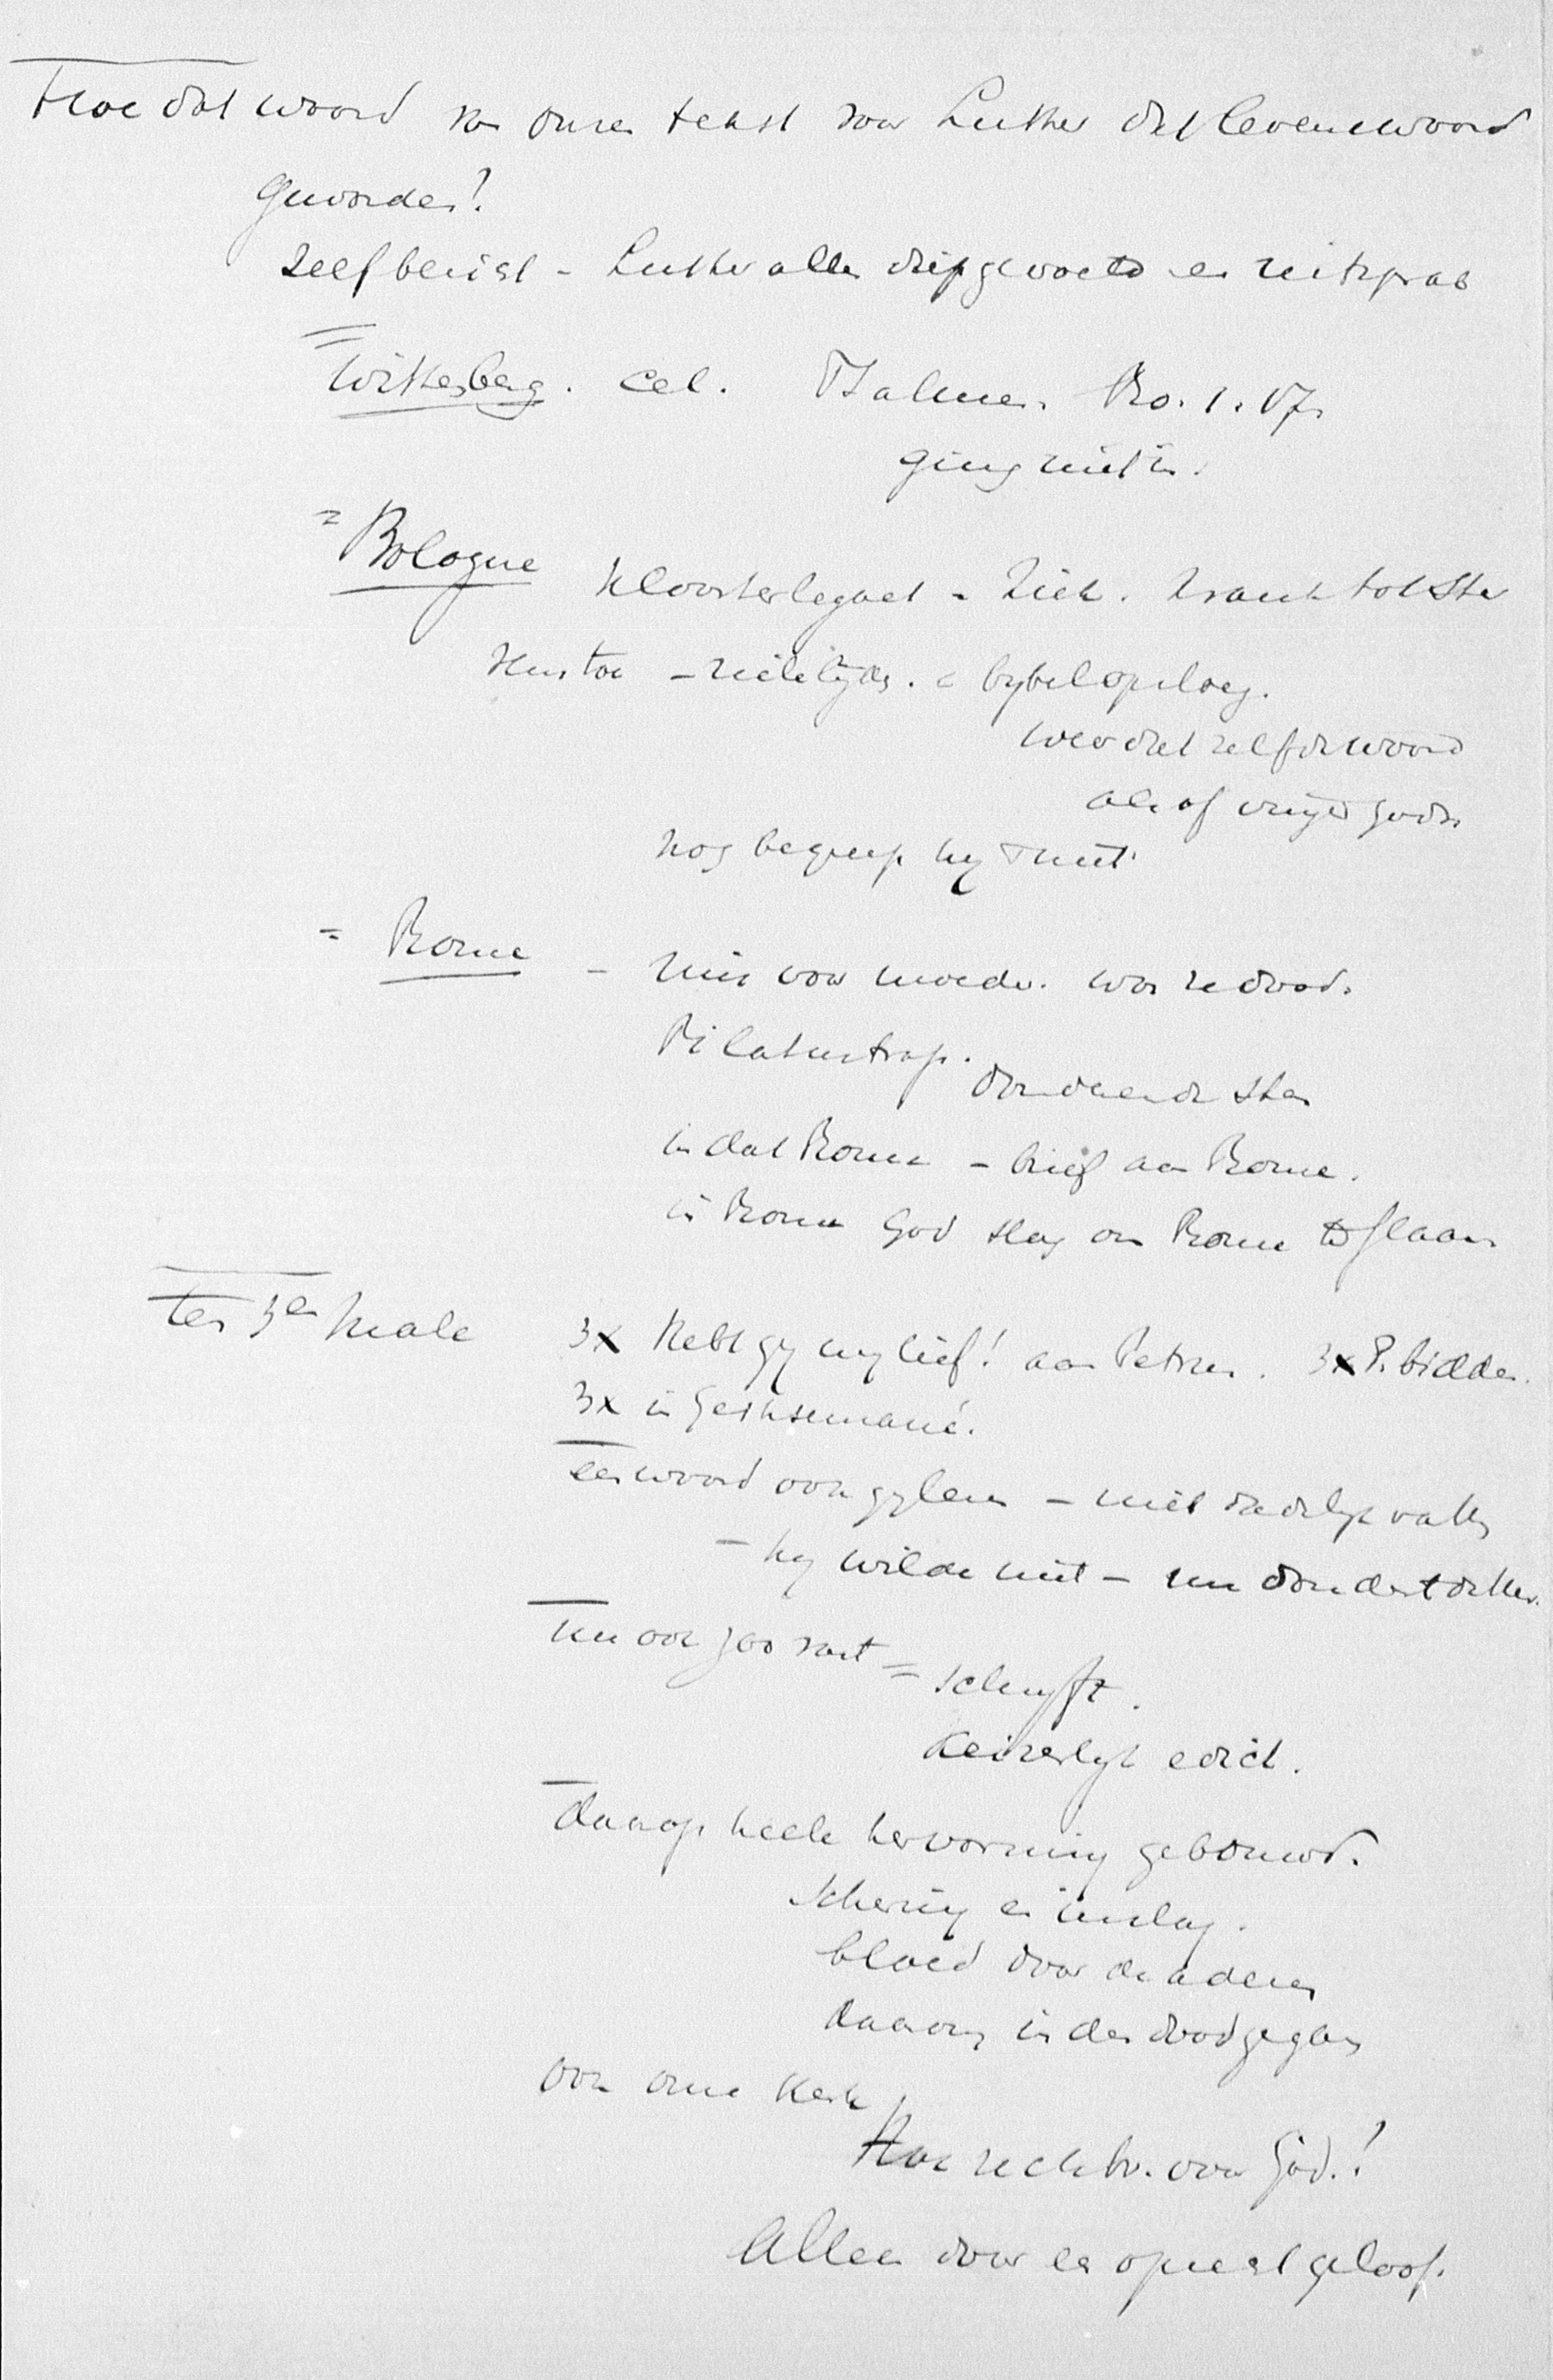 Hoe dat woord van onzen tekst voor Luther dat levenswoord
geworden?
Zelfbewist - Luther alles diepgevoeld en
Wittenberg. cel. Psalmen. Ro. 1. 17.
ging niet in.
= Bologne kloosterlegaat - Ziek.
- ziele lijden. = bybel opsloeg.
weer dat zelfde woord
alsof vinger Gods
nog begreep hy 't niet.
= Rome - mis voor moeder. was ze dood.
Pilatustrap.
donderende stem
in dat Rome - brief aan Rome.
in Rome God slag om Rome te slaan
ten 3en male 3x Hebt gy my lief! aan Petrus. 3x P. bidden.
3x in Gethsemané.
een woord ook gylezen - niet dadelyk vatten
- hy wilde niet - nu dondert
nu ook zoo vast = schryft.
Keizerlyk edict.
daarop heele hervorming gebouwd.
Schering en inslag.
bloed door de aderen
daarom in den dood gegaan
ook onze Kerk
Hoe rechtv. voor God.!
Alleen door een oprecht geloof.